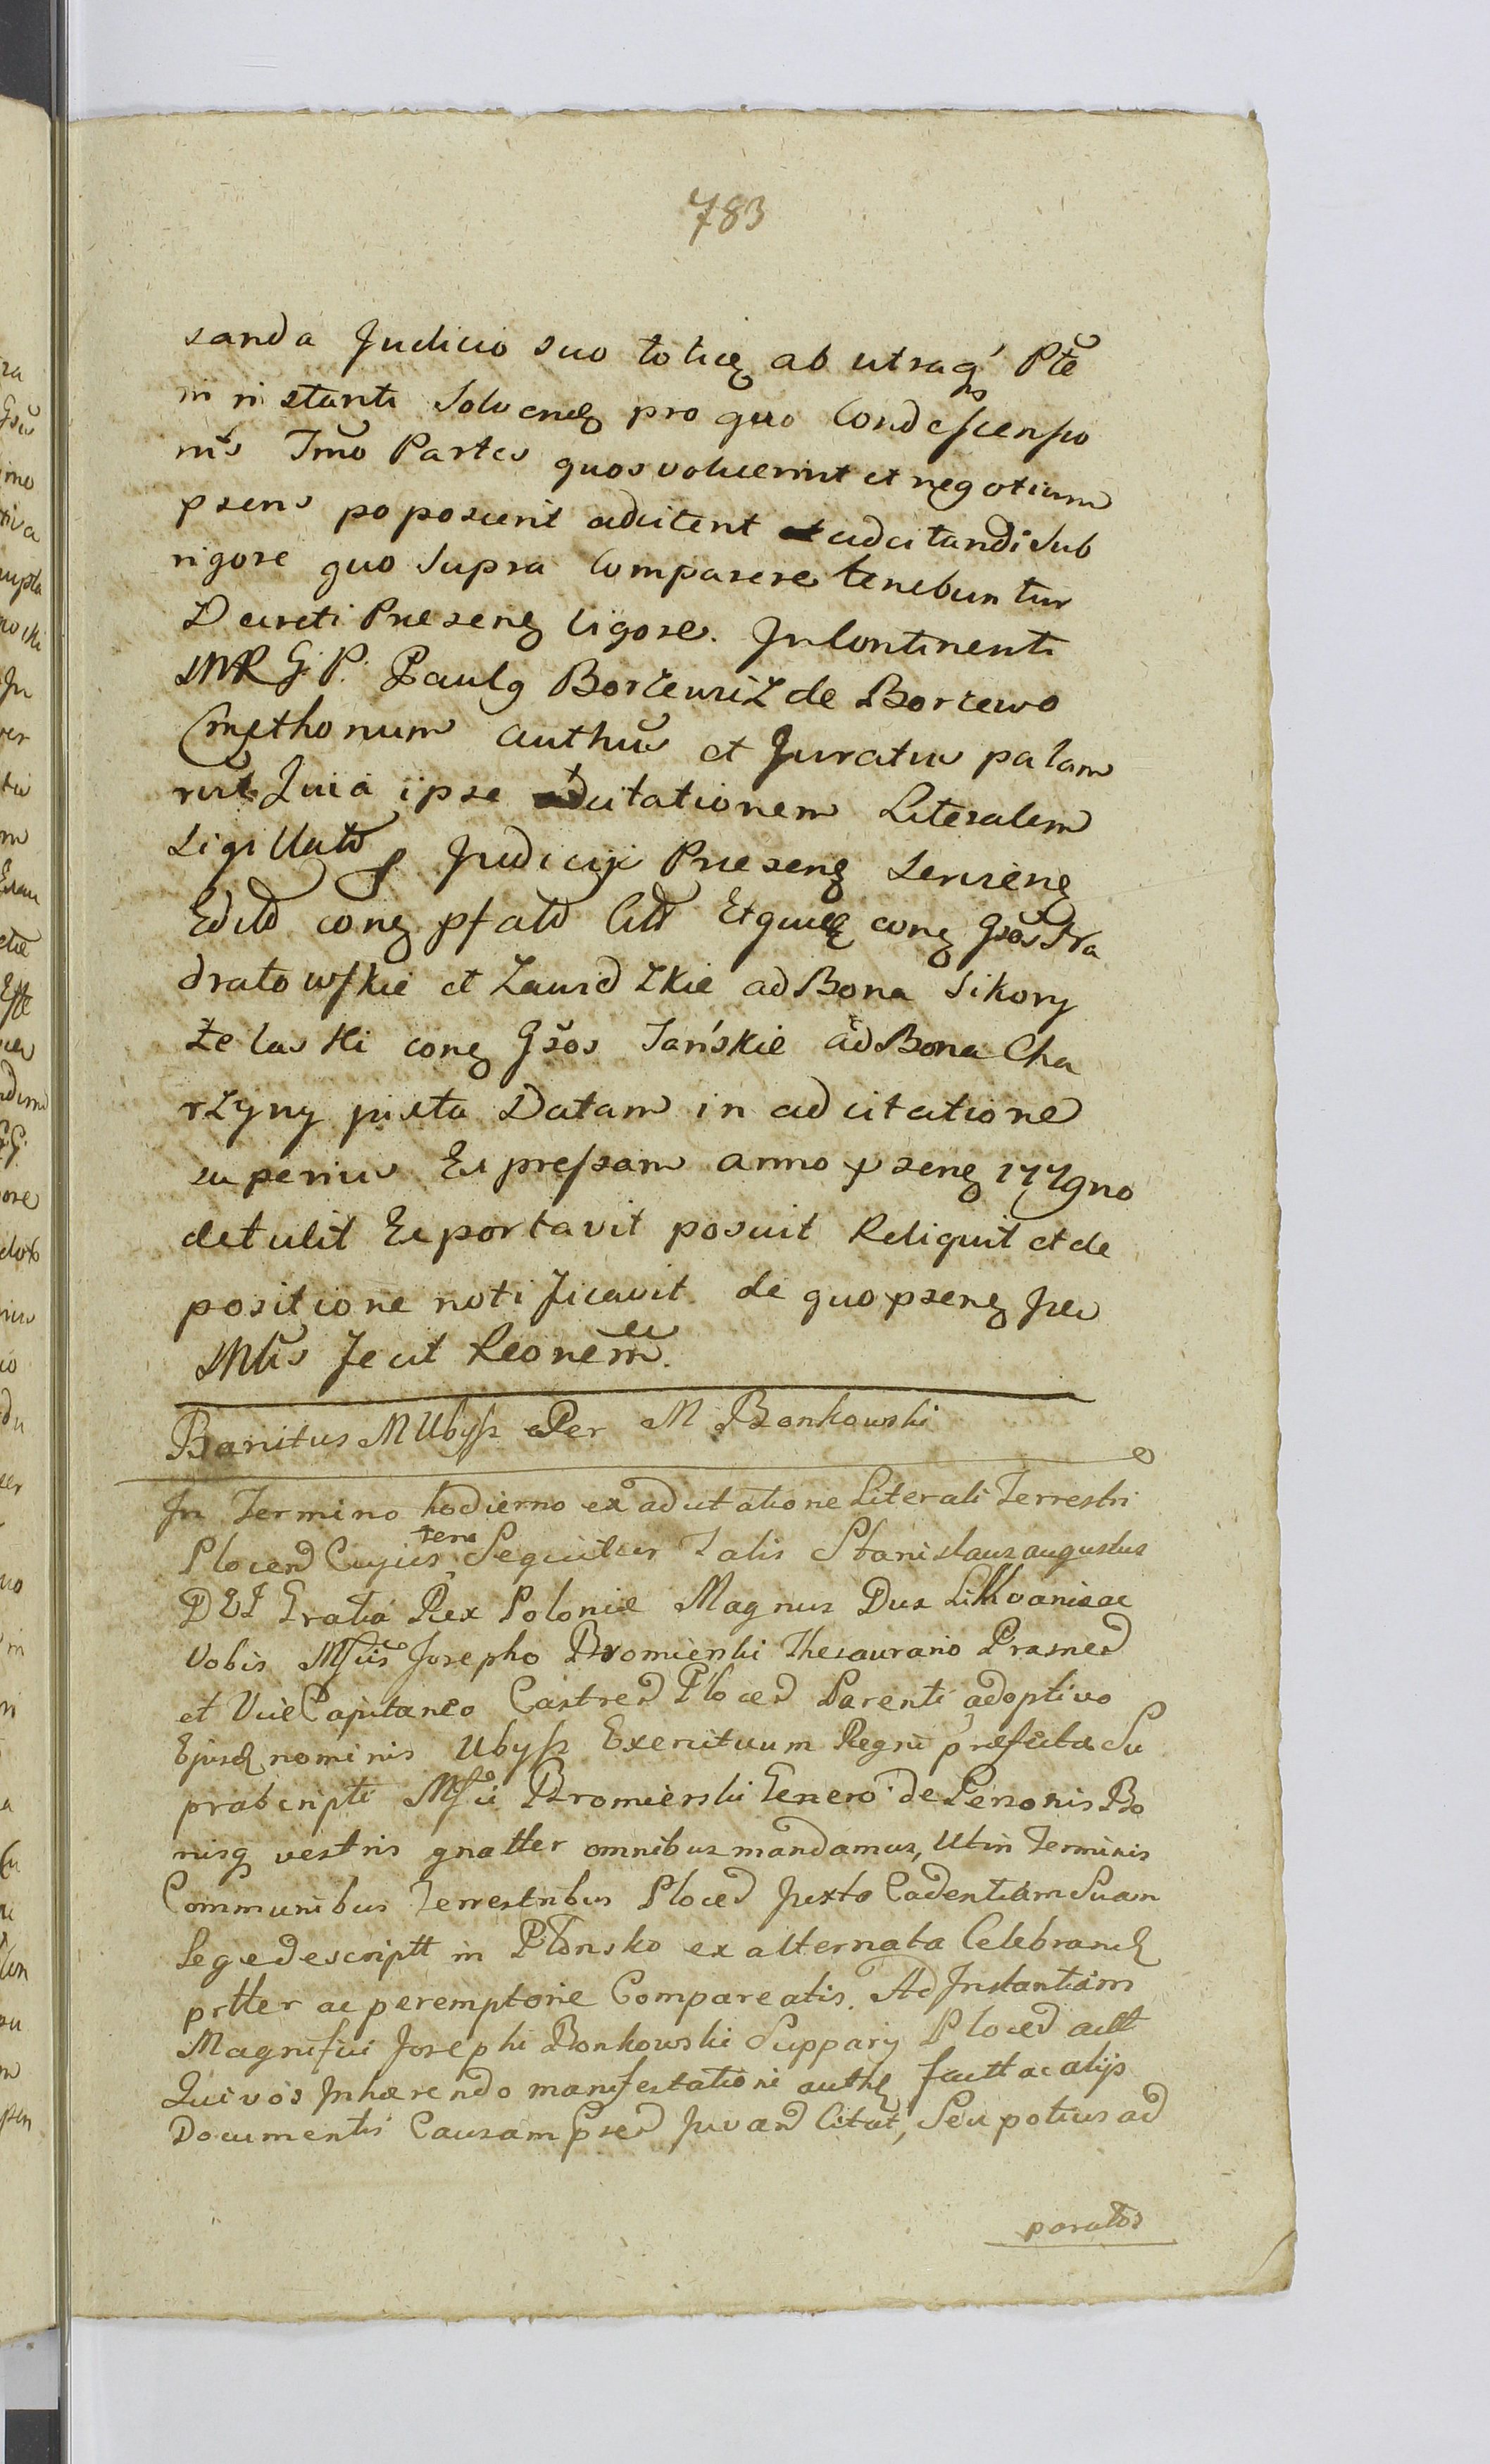 783
sanda Judicio suo toties ab utraq Pte
in instanti Solvenq pro quo Condescensio
nis Imo Partes quos voluerint et negotium
psens poposcerit adcitent adcitandi sub
rigore quo supra Comparere tenebuntur
Decreti Praesenq Vigore. In Continenti
MR G. P. Paulq Borzewicz de Borzewo
Cmethonum authus et Juratus palam
rut Quia ipse adcitationem Literalem
Sigillatd Judicij Praesenq Servienq
Editd conq pfatd Citt Et quidq conq Gsos Na
dratowskie et Zawidzkie ad Bona Sikory
żelaski conq Gsos Jańskie ad Bona Cha
rzyny juxta Datam in adcitatione
superius Expressam anno psenq 1779no
detulit Exportavit posuit Reliquit et de
positione notificavit de quo psenq Jud
Mtis fecit Reonem.
Banitus M Ubysz Per M Bonkowski
In Termino hodierno ex adcitatione Literali Terrestri
Plocend Cujus tenor Sequitur Talis Stanislaus augustus
DEI Gratia Rex Poloniae Magnus Dux Litthvaniae ac
Vobis Mscis Josepho Bromierski Thesaurario Prasned
et Vice Capitaneo Castred Plocd Parenti adoptivo
Ejusd nominis Ubysz Exercituum Regni praefecto Su
prascripti Msci Bromierski Genero de Personis Bo
nisq vestris gnatter omnibus mandamus, Ut in Terminis
Communibus Terrestribus Plocd Juxta Cadentiam Suam
Lege descriptt in Płonsko ex alternata Celebrand
prtter ac peremptorie Compareatis. Ad Instantiam
Magnifici Josephi Bonkowski Supparij Plocd actt
Qui vos Inhaerendo manifestationi authq factt ac alijs
Documentis Causam psed Juvand Citat, Seu potius ad
paratos